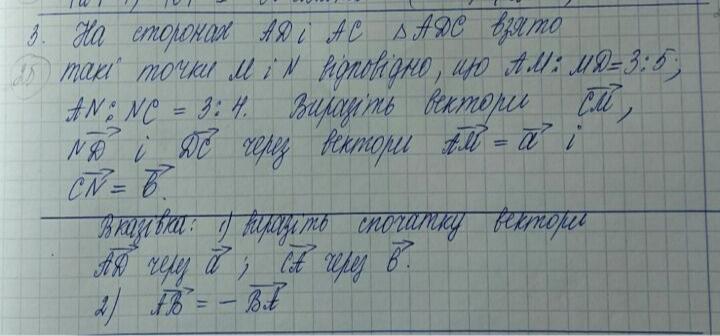 3. На сторонах AD і AC △ADC взято
25 такі точки M і N відповідно, що AM:MD=3:5;
AN:NC = 3:4. Виразіть вектори CM,
ND і DC через вектори AM = a і
CN = b.
Вказівка: 1) виразіть спочатку вектори
AD через a; CA через b.
2) AB = - BA